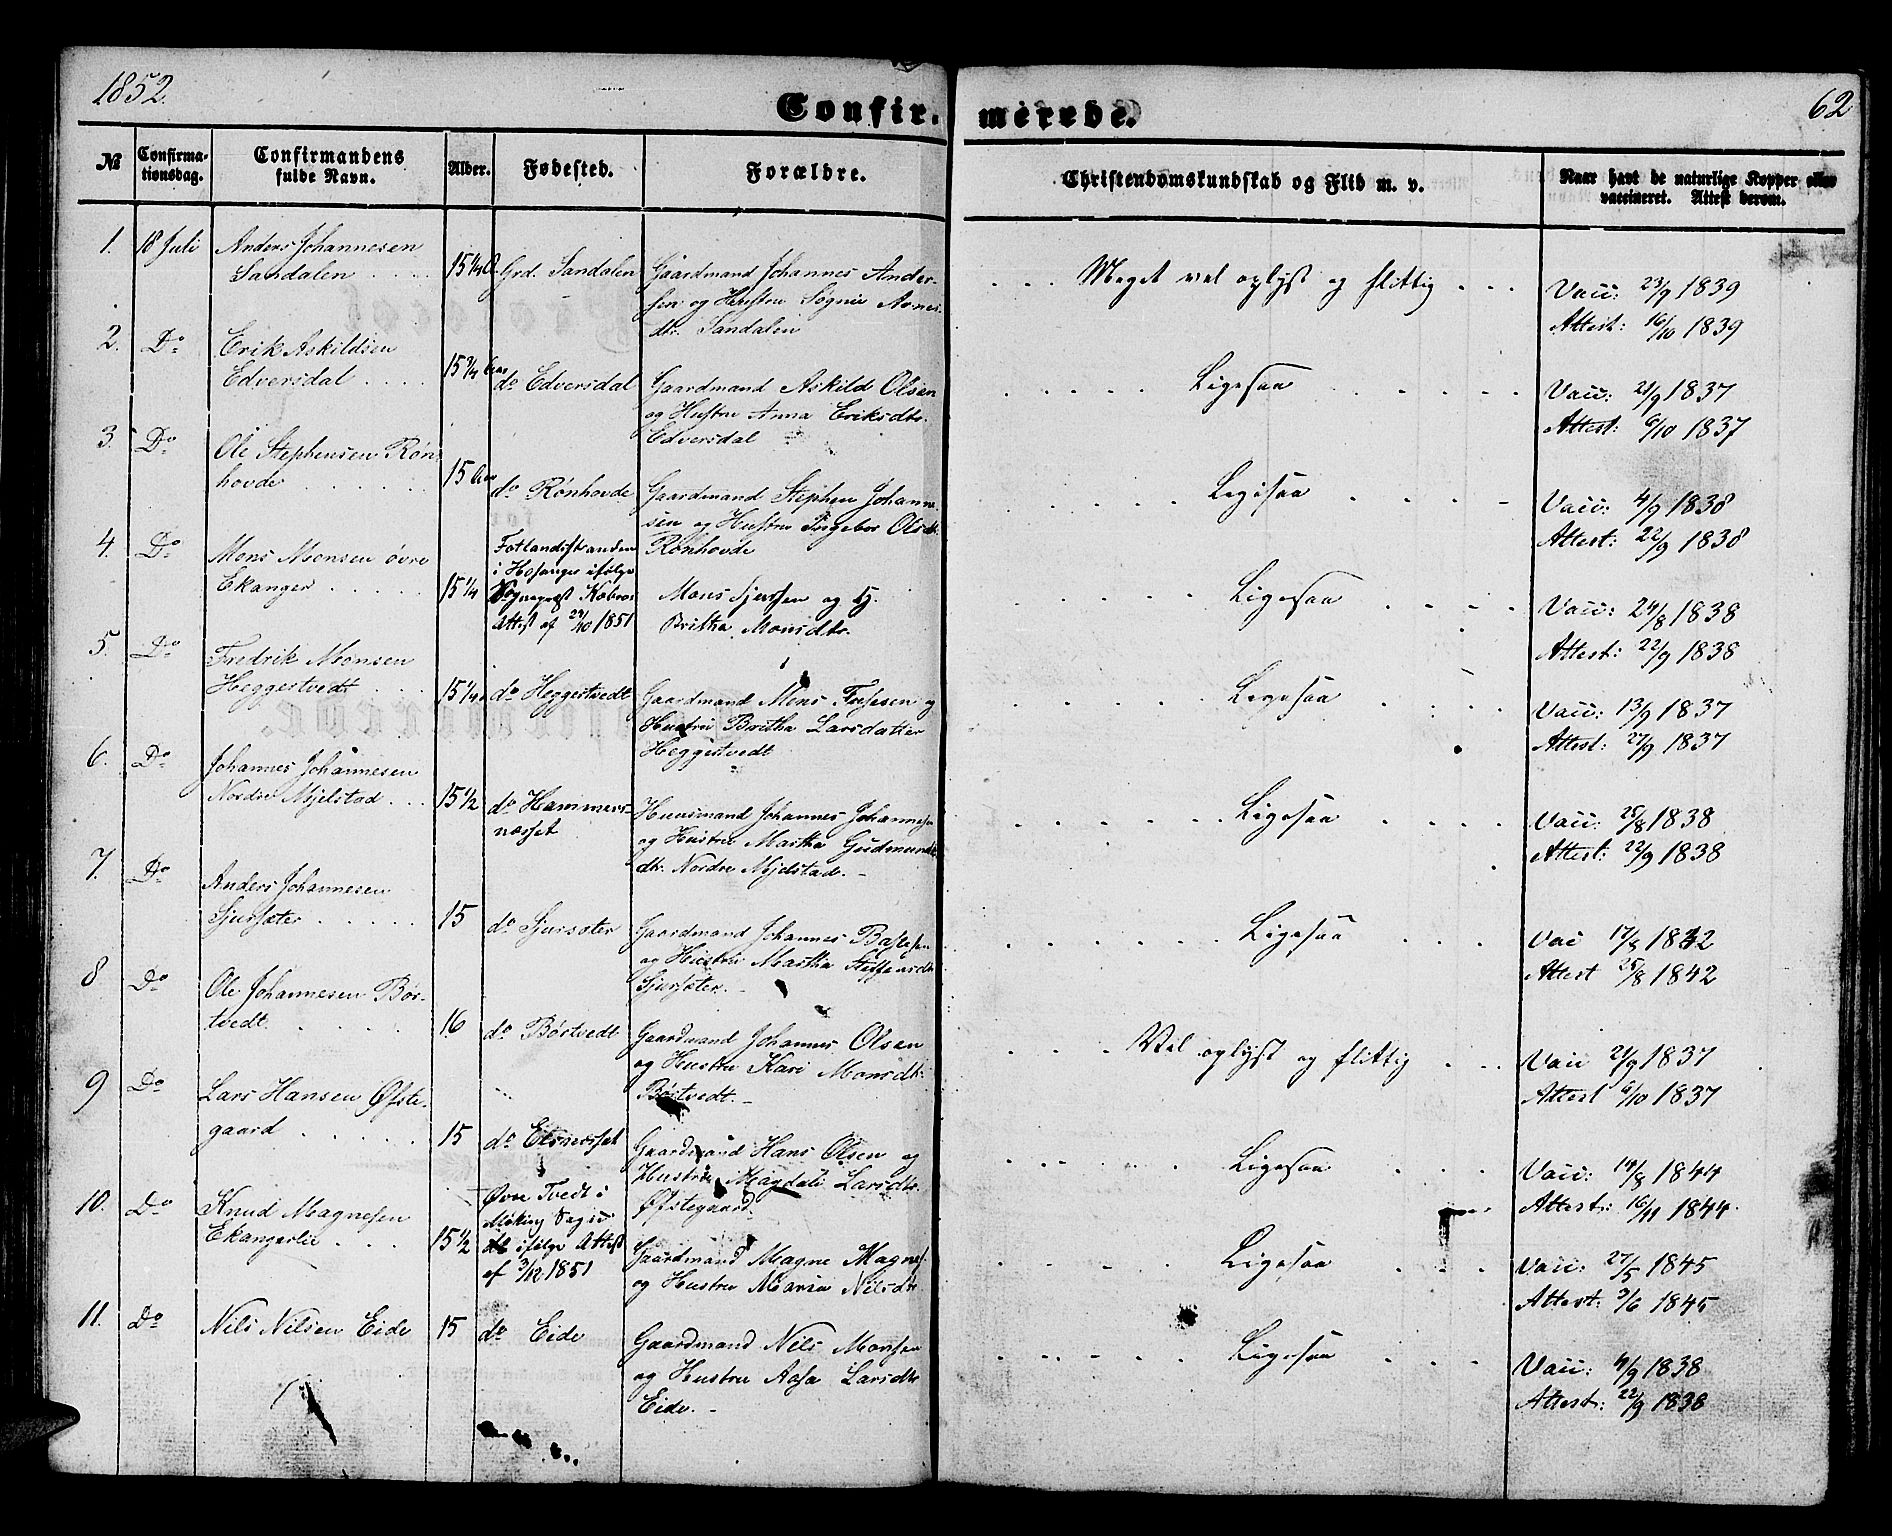 1852.
Confir. merede.
62
No
Confirma-
tionsdag.
Confirmandens
fulde Navn.
Alder.
Fødested.
Forældre.
Christendomskundskab og Flid m. v.
Naar havt de naturlige Kopper eller
vaccineret. Attest derom.
1. 18 Juli Anders Johannesen
Sandalen . . . .
15 1/4 Grd. Sandalen
Gaardmand Johannes Ander-
sen og Hustru Sognie Arnes-
dtr. Sandalen
. . . Meget vel oplyst og flittig . . .
Vacc: 23/9 1839
Attest: 16/10 1839
2. Do Erik Askildsen
Edversdal . . . .
15 3/4 Aar do Edversdal
Gaardmand Askild Olsen
og Hustru Anna Eriksdtr.
Edversdal
Ligesaa
Vacc: 21/9 1837
Attest: 6/10 1837
3. Do Ole Stephensen Røn-
hovde . . . . . .
15 Aar do Rønhovde
Gaardmand Stephen Johanne-
sen og Hustru Ingebor Olsdtr.
Rønhovde
Ligesaa
Vacc: 4/9 1838
Attest: 22/9 1838
4. Do Mons Monsen øvre
Ekanger . . . . .
15 1/4
Fotlandsstranden
i Hosanger ifølge
Sognepræst
Attest af 29/10 1851
Mons Sjursen og H.
Britha Monsdtr.
Ligesaa
Vacc: 24/8 1838
Attest: 22/9 1838
5. Do Fredrik Monsen
Heggestvedt . . .
15 1/4 do Heggestvedt
Gaardmand Mons og
Hustru Britha Larsdatter
Heggestvedt
Ligesaa
Vacc: 13/9 1837
Attest: 27/9 1837
6. Do Johannes Johannesen
Nordre Mjelstad . . .
15 1/2 do Hammers-
næsset
Huusmand Johannes Johannesen
og Hustru Martha Gudmunds
dtr. Nordre Mjelstad. -
Ligesaa
Vacc: 25/8 1838
Attest: 22/9 1838
7. Do Anders Johannesen
Sjursæter . . . . .
15 do Sjursæter
Gaardmand Johannes
og Hustru Martha Steffensdtr
Sjursæter. -
Ligesaa
Vac 17/8 1842
Attest 25/8 1842
8 Do Ole Johannesen Bør-
tvedt . . . . .
16 do Børtvedt
Gaardmand Johannes Olsen
og Hustru Kari Monsdtr.
Børtvedt. -
. . . Vel oplyst og flittig . . .
Vacc 21/9 1837
Attest 6/10 1837
9 Do Lars Hansen Øfste-
gaard . . . . .
15 do
Gaardmand Hans Olsen og
Hustru Magdali Larsdtr.
Øfstegaard.
Ligesaa
Vacc: 14/8 1844
Attest: 16/11 1844.
10. Do Knud Magnesen
Ekangerlie . . .
15 1/2
Øvre Tvedt i
ifølge Attest
af 3/12 1851
Gaardmand Magne Magnes.
og Hustru Maria Nilsdtr
Ligesaa
Vacc: 27/5 1845
Attest: 3/6 1845
11. Do Nils Nilsen Eide
15 do Eide
Gaardmand Nils Monsen
og Hustru Aasa Larsdtr
Eide. -
Ligesaa
Vacc: 4/9 1838
Attest: 22/9 1838